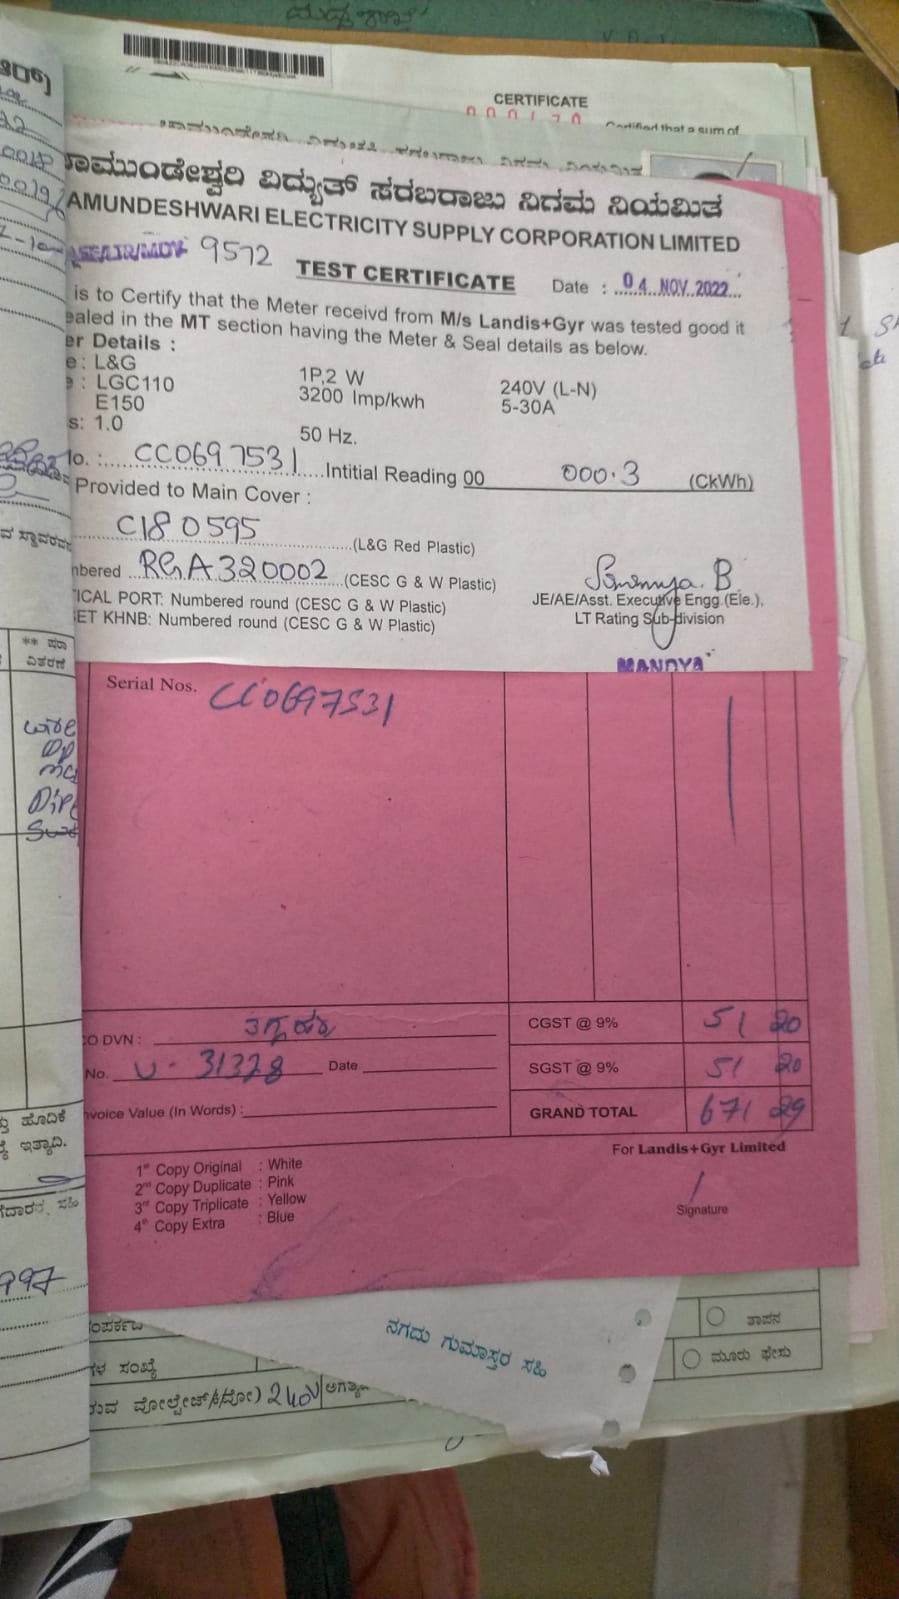 CERTIFICATE
Certified that a sum of
ಾಮುಂಡೇಶ್ವರಿ ವಿದ್ಯುತ್ ಸರಬರಾಜು ನಿಗಮ ನಿಯಮಿತ
AMUNDESHWARI ELECTRICITY SUPPLY CORPORATION LIMITED
9572
TEST CERTIFICATE Date : 04 NOV 2022
is to Certify that the Meter receivd from M/s Landis+Gyr was tested good it
ealed in the MT section having the Meter & Seal details as below.
er Details :
e : L&G 1P,2 W 240V (L-N)
e : LGC110 3200 Imp/kwh 5-30A
E150
s: 1.0 50 Hz.
lo. : CC0697531 Intitial Reading 00 000.3 (CkWh)
Provided to Main Cover :
C180595 (L&G Red Plastic)
nbered RGA320002 (CESC G & W Plastic)
TICAL PORT: Numbered round (CESC G & W Plastic)
ET KHNB: Numbered round (CESC G & W Plastic)
JE/AE/Asst. Executive Engg.(Ele.),
LT Rating Sub-division
MANDYA
Serial Nos. CC0697531
O DVN : CGST @ 9% 51 20
No. U - 31378 Date SGST @ 9% 51 20
nvoice Value (In Words) : GRAND TOTAL 671 29
For Landis+Gyr Limited
1st Copy Original : White
2nd Copy Duplicate : Pink
3rd Copy Triplicate : Yellow
4th Copy Extra : Blue
Signature
** ಷರಾ
ವಿತರಣೆ
ಹೊದಿಕೆ
ಇತ್ಯಾದಿ.
997
ನಗದು ಗುಮಾಸ್ತರ ಸಹಿ
ಸಂಪರ್ಕದ
ಗಳ ಸಂಖ್ಯೆ
240V
ತಾಪನ
ಮೂರು ಫೇಸು